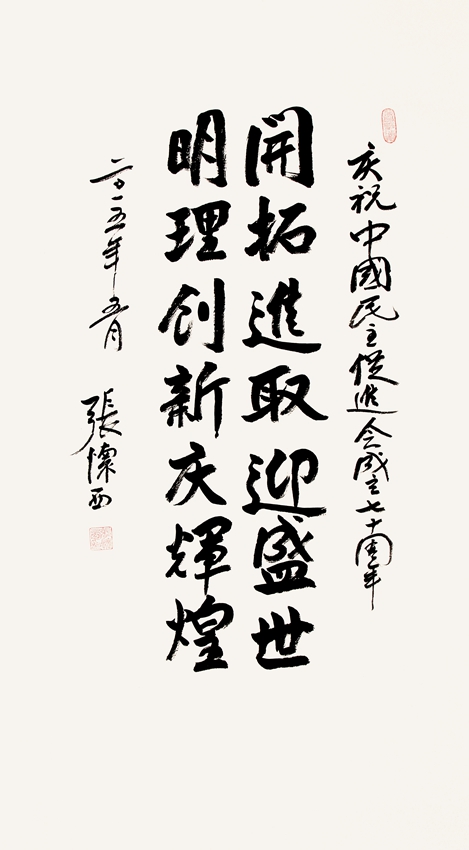 庆祝中國民主促進会成立七十周年
開拓進取迎盛世
明理创新庆輝煌
二〇一五年五月 張懷西